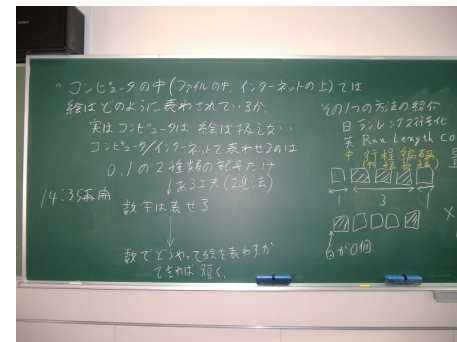 。コンピュータの中(ファイルの中、インターネットの上)では
絵はどのように表わされているか.
実はコンピュータは 絵は扱えない
コンピュータ/インターネットで表わせるのは
0.1の2種類の記号だけ
ある工夫(2進法)
数字は表せる
数でどうやって絵を表わすか
できれば短く.
14:35再開
その1つの方法の紹介
日 ランレングス符号化
英 Run Length Co
中 行程編
1 3 1
×
白が0個